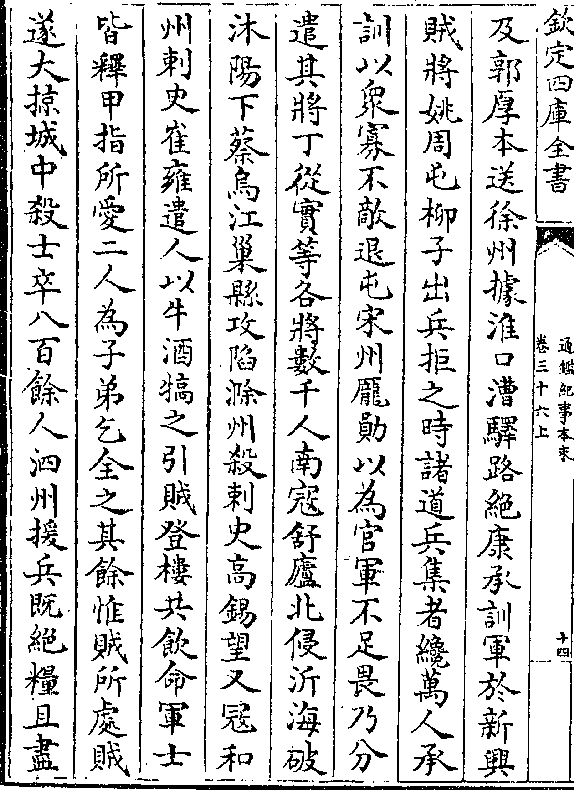 欽定四庫全書
通鑑紀事本末
卷三十六上
十四
及郭厚本送徐州據淮口漕驛路絕康承訓軍於新興
賊將姚周屯柳子出兵拒之時諸道兵集者纔萬人承
訓以衆寡不敵退屯宋州龐勛以為官軍不足畏乃分
遣其將丁從實等各將數千人南寇舒廬北侵沂海破
沐陽下蔡烏江巢縣攻陷滁州殺刺史高錫望又冦和
州刺史崔雍遣人以牛酒犒之引賊登樓共飲命軍士
皆釋甲指所愛二人為子弟乞全之其餘惟賊所處賊
遂大掠城中殺士卒八百餘人泗州援兵既絕糧且盡